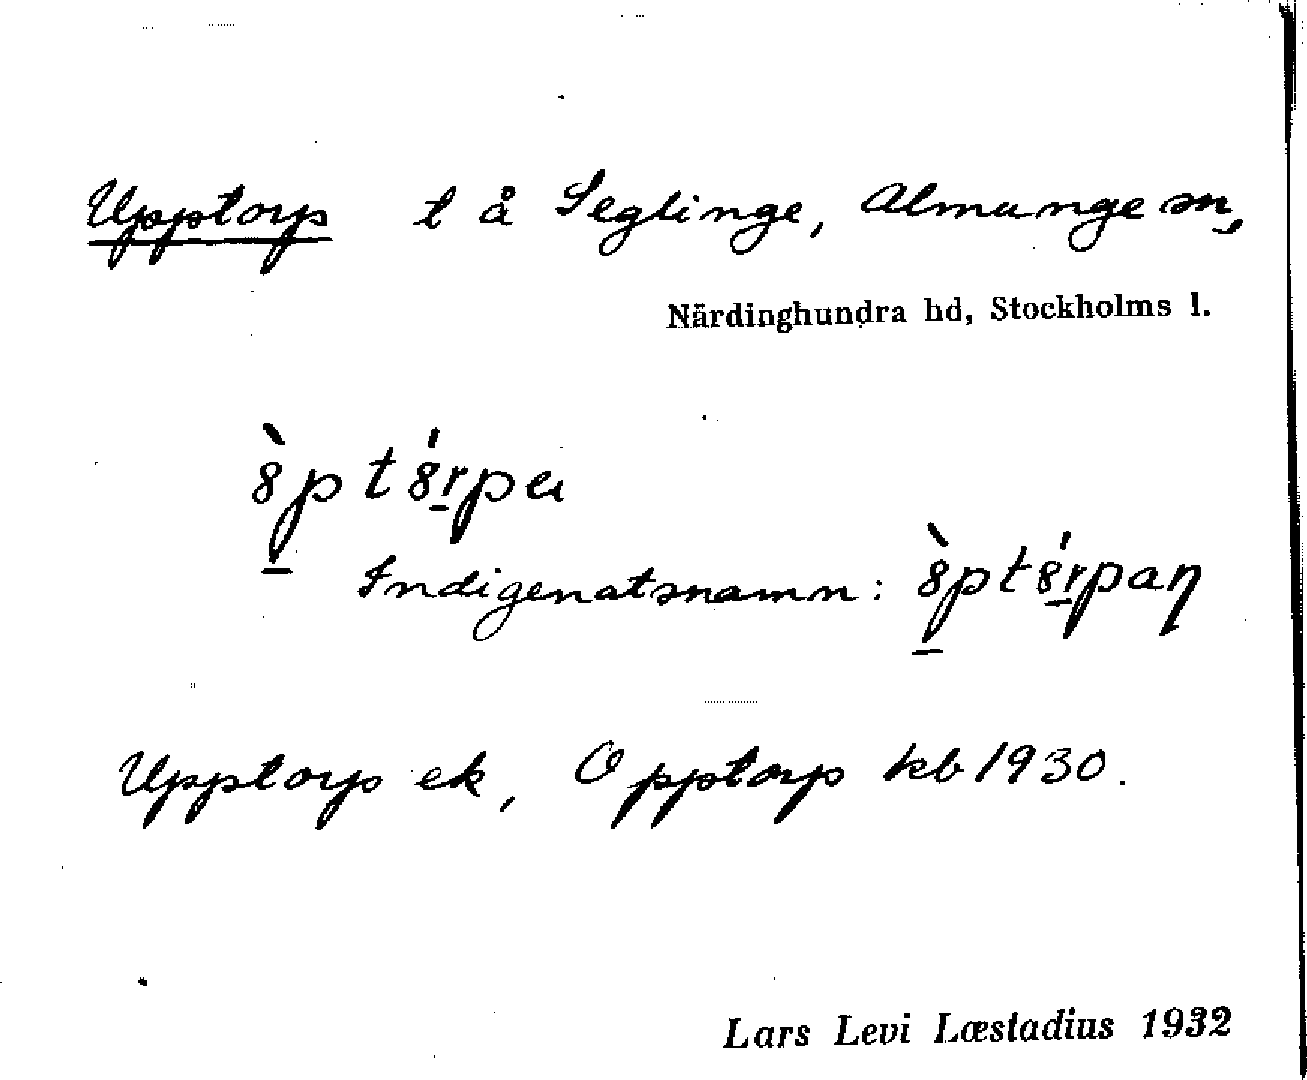 Upptorp t å Seglinge, Almunge sn,
Närdinghundra hd, Stockholms l.
Indigenatsnamn:
Upptorp ek, Opptorp kb 1930.
Lars Levi Læstadius 1932